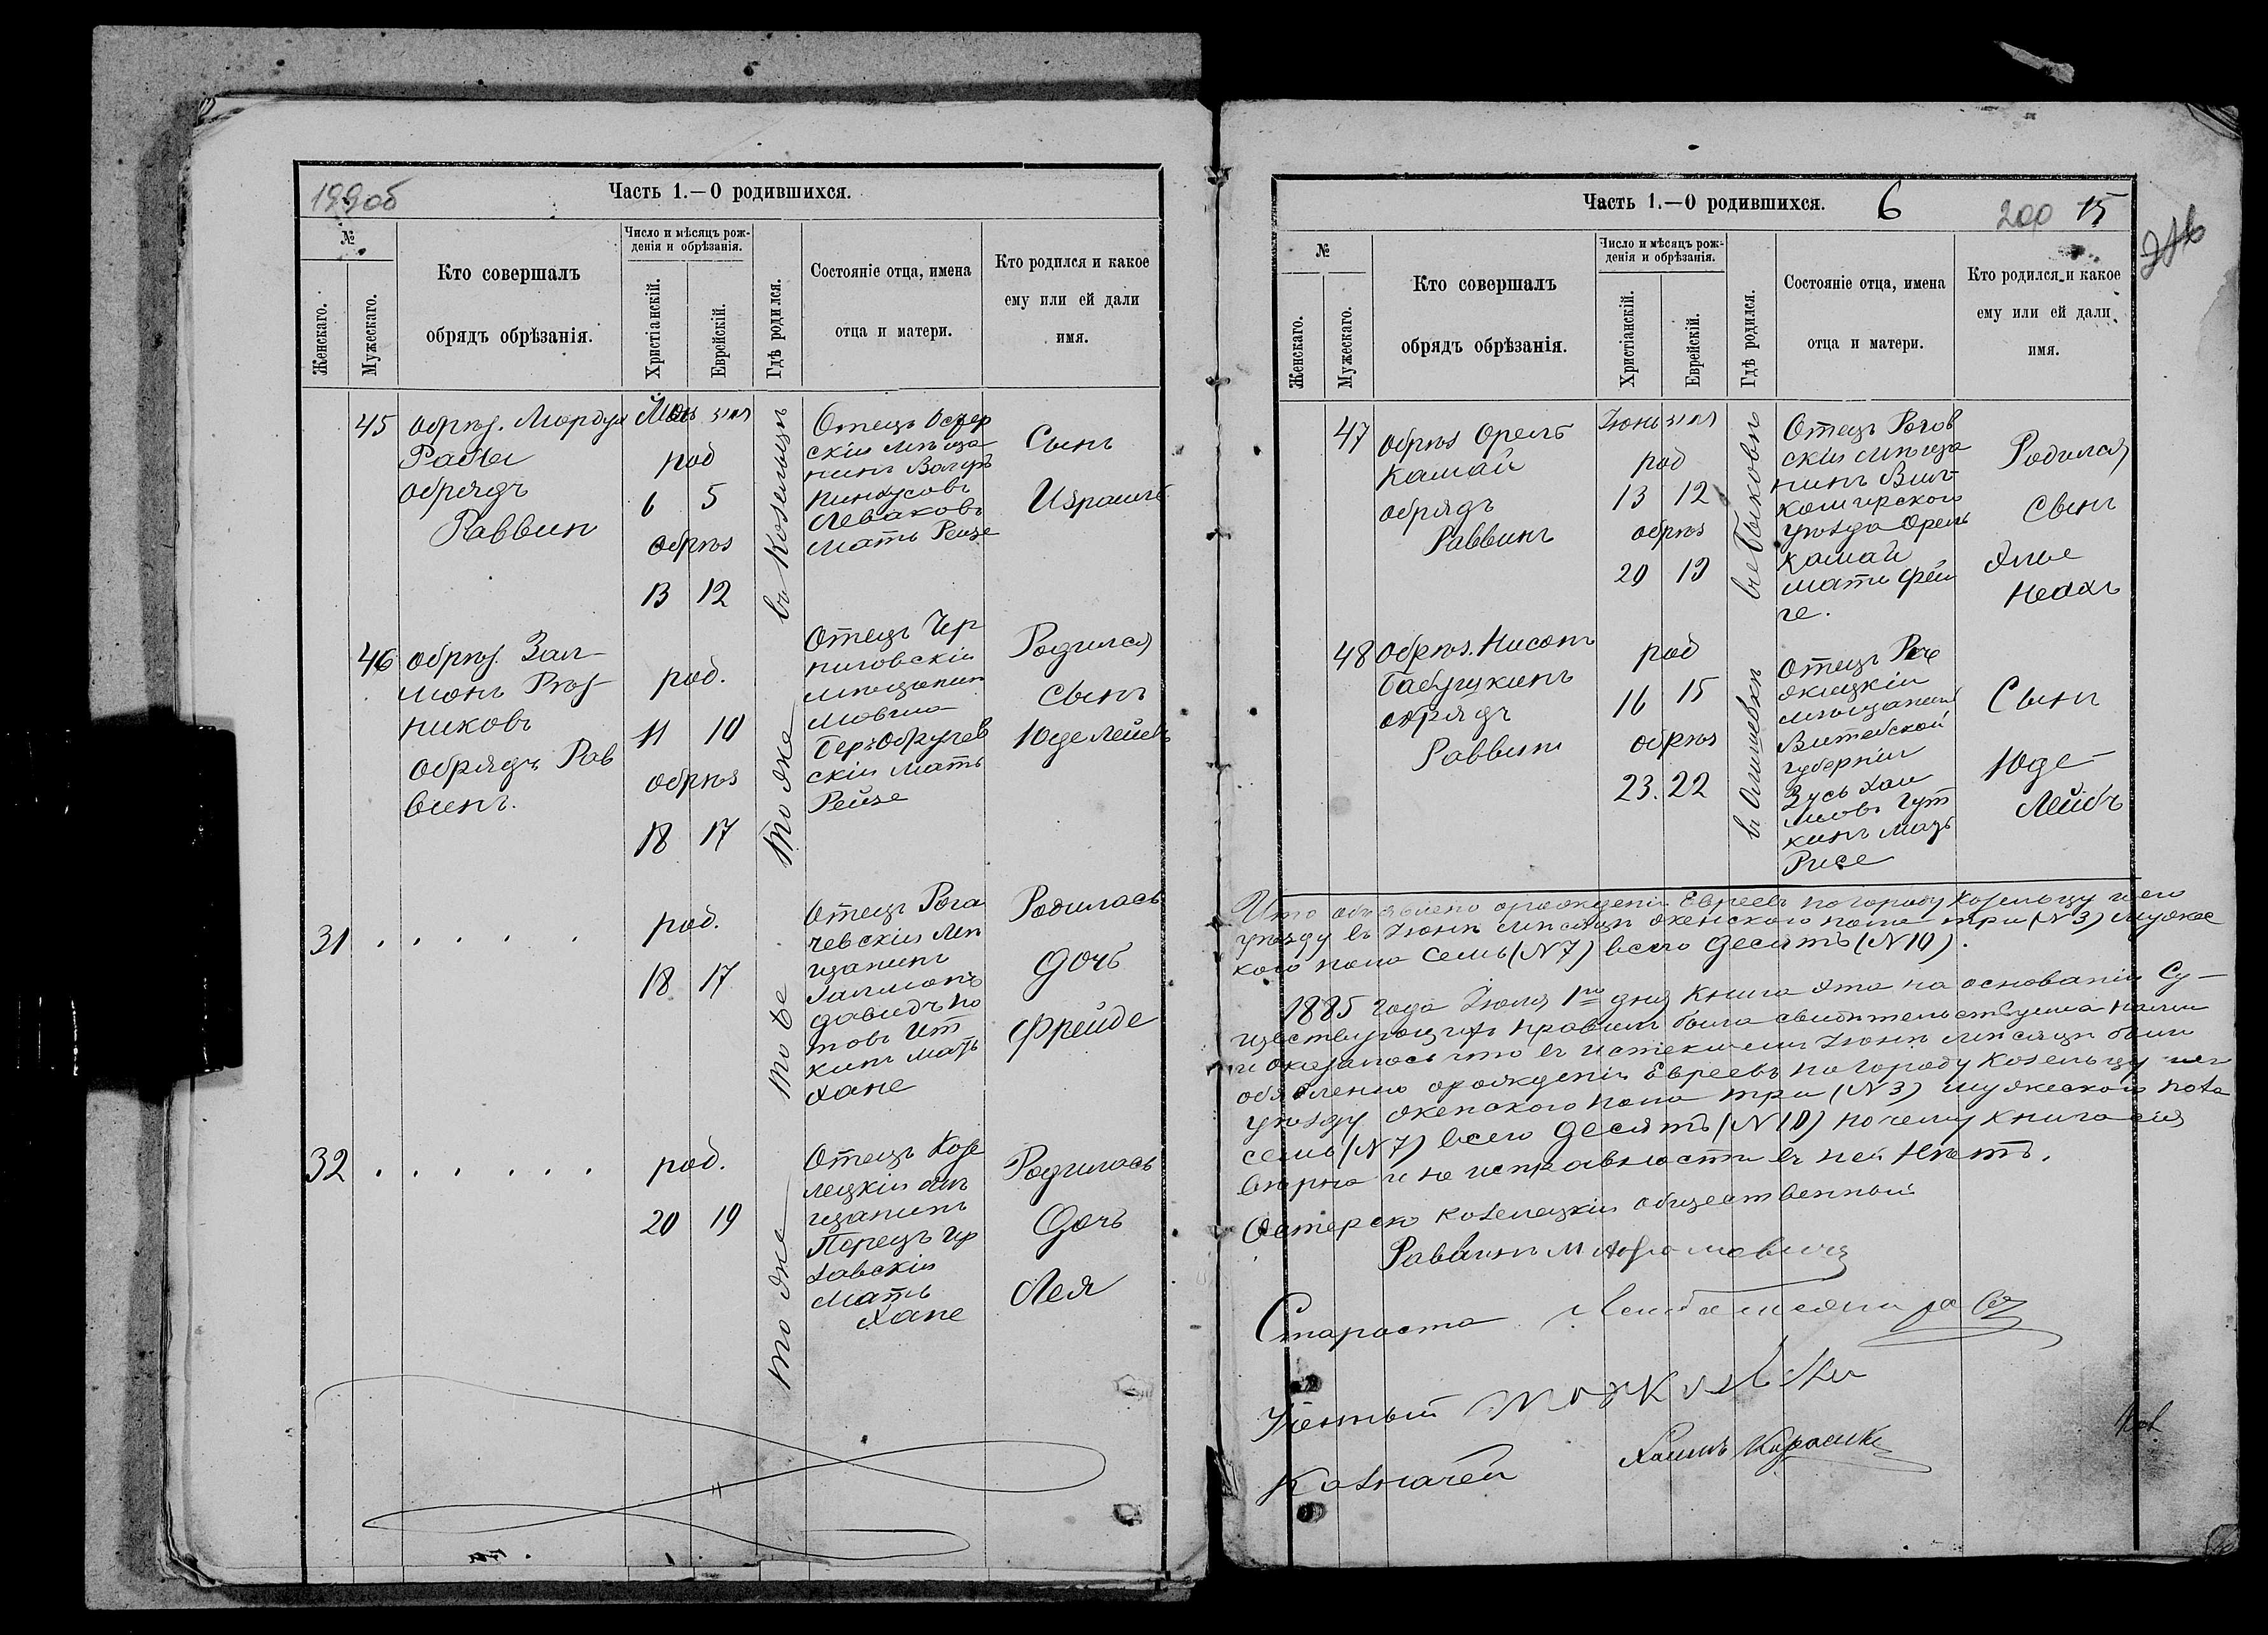 199об
Часть 1.—О родившихся.
№
Женскаго.
Мужескаго.
Кто совершалъ
обрядъ обрѣзанія.
Число и мѣсяцъ рож-
денія и обрѣзанія.
Христіанскій.
Еврейскій.
Гдѣ родился.
Состояніе отца, имена
отца и матери.
Кто родился и какое
ему или ей дали
имя.
45
обрѣз. Мордух
обрядъ
Раввин
род
6 5
обрѣз
13 12
въ Козельцѣ
Отецъ Остер
скій мѣща
нинъ
Пинхусовъ
Леваковъ
мать Рейзе
Сынъ
Израиль
46
обрѣз. Зал-
монъ Рез-
никовъ
обрядъ Рав
винъ.
род.
11 10
обрѣз
18 17
то же
Отецъ Чер
ниговскій
мѣщанин
Мовша
Беръ
скій мать
Рейзе
Родился
сынъ
Юде Лейбъ
31
род.
18 17
то же
Отецъ Рога
чевскій мѣ
щанинъ
Залмонъ
Давидъ Но
товъ Ит
кинъ мать
Хане
Родилась
дочь
Фрейде
32
род.
20 19
то же
Отецъ Козе
лецкій мѣ
щанинъ
Перецъ
мать
Хане
Родилась
дочь
Лея
Часть 1.—О родившихся.
6
200 15
№
Женскаго.
Мужескаго.
Кто совершалъ
обрядъ обрѣзанія.
Число и мѣсяцъ рож-
денія и обрѣзанія.
Христіанскій.
Еврейскій.
Гдѣ родился.
Состояніе отца, имена
отца и матери.
Кто родился и какое
ему или ей дали
имя.
47
обрѣз Орелъ
Камай
обрядъ
Раввинъ
Іюнь
род
13 12
обрѣз
20 19
Быковѣ
Отецъ Рогов
скій мѣща
нинъ Вил
комирского
уѣзда Орель
Камай
мать Фей
ге.
Родился
сынъ
Эліе
Ноахъ
48
Обрѣз. Нисонъ
Бабушкинъ
обрядъ
Раввинъ
род
16 15
обрѣз
23. 22
Отецъ Рѣ
жицкій
мѣщанинъ
Витебской
губерніи
Зусь Хаи
мовъ Гут
кинъ мать
Рисе
Сынъ
Юде-
Лейбъ
Что объявлено о рожденіи Евреевъ по городу Козельцу и его
уѣзду въ Іюнѣ мѣсяцѣ женского пола три (№ 3) мужес
кого пола семь (№ 7) всего десять (№ 10).
1885 года Іюля 1го дня Книга эта на основаніи су-
ществующихъ правилъ была свидѣтельствуема нами
и оказалось что въ истекшемъ Іюнѣ мѣсяцѣ было
объявленно о рожденіи Евреевъ по городу Козельцу и его
уѣзду женского пола три (№ 3) мужеского пола
семь (№ 7) всего десять (№ 10) почему книга сія
вѣрна и неисправности въ ней нѣтъ.
Остерско Козелецкій общественный
Раввинъ М
Староста
Ученый
Казначей
Хаимъ